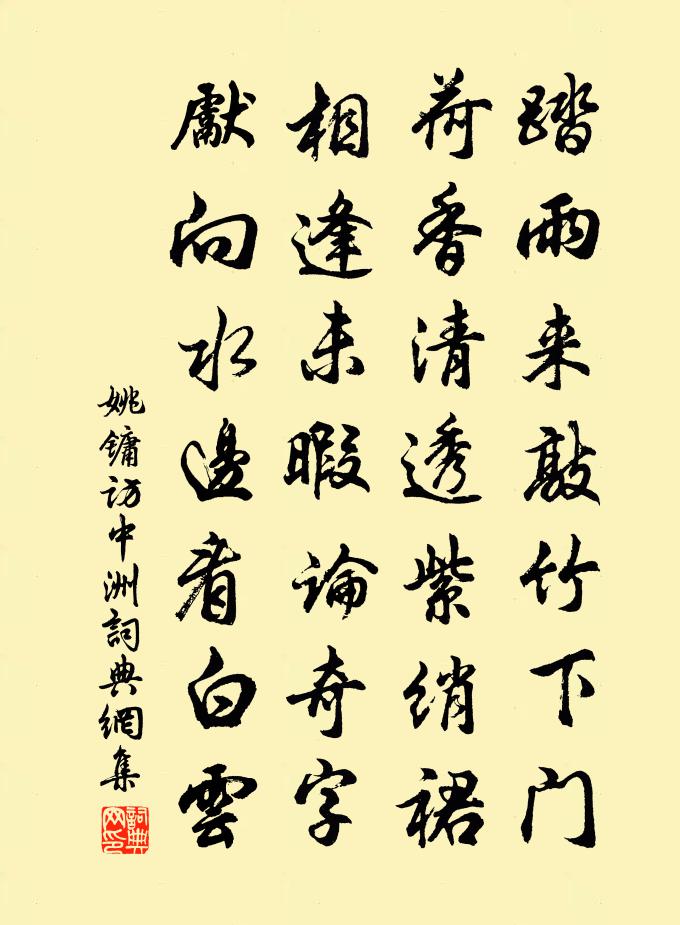 踏雨来敲竹下門
荷香清透紫綃裙
相逢未暇論奇字
獻向水邊看白雲
姚鏞訪中洲詞典網集
詞典网印